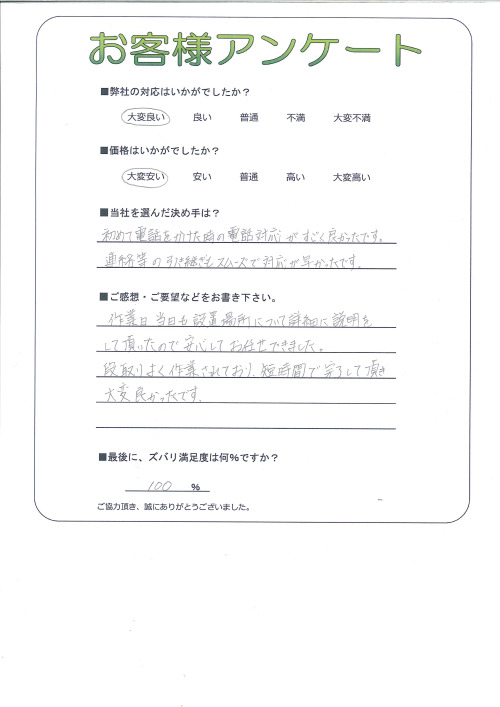 お客様アンケート
■弊社の対応はいかがでしたか?
大変良い 良い 普通 不満 大変不満
■価格はいかがでしたか?
大変安い 安い 普通 高い 大変高い
■当社を選んだ決め手は?
初めて電話をかけた時の電話対応がすごく良かったです。
連絡等の引き継ぎもスムーズで対応が早かったです。
■ご感想・ご要望などをお書き下さい。
作業日当日も設置場所について詳細に説明を
して頂いたので安心してお任せできました。
段取りよく作業されており、短時間で完了して頂き
大変良かったです。
■最後に、ズバリ満足度は何%ですか?
100 %
ご協力頂き、誠にありがとうございました。